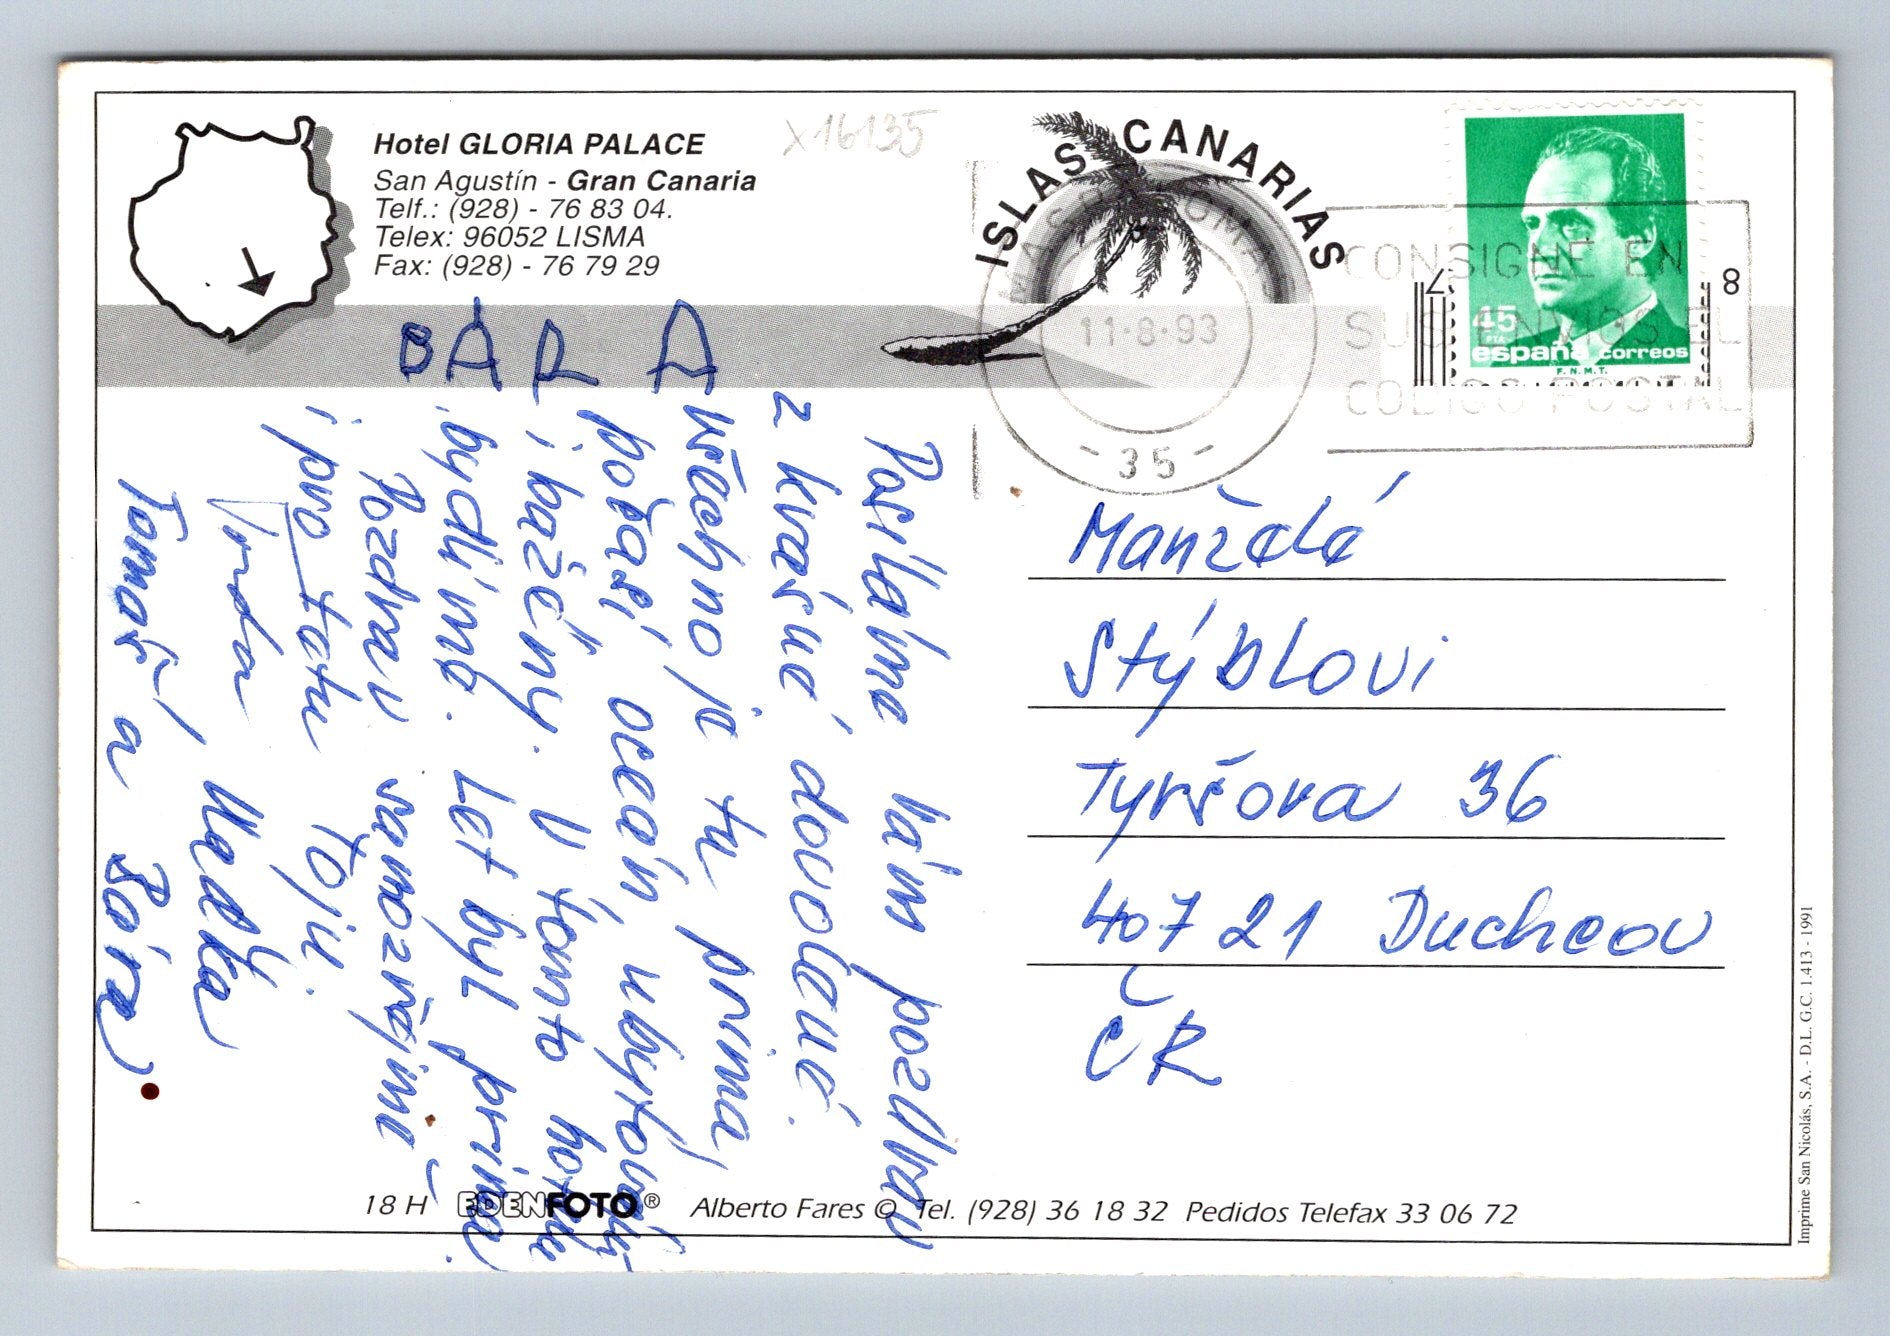 Hotel GLORIA PALACE
San Agustín - Gran Canaria
Telf.: (928) - 76 83 04.
Telex: 96052 LISMA
Fax: (928) - 76 79 29
X16135
ISLAS CANARIAS
11·8·93
- 35 -
CONSIGNE EN
SUS ENVIOS EL
CODIGO POSTAL
8
45
PTA
españa correos
F.N.M.T.
BÁRA
Posíláme Vám pozdrav
z krásné dovolené.
Všechno je tu prima,
počasí, oceán, ubytování
i bazény. V tomto hotelu
bydlíme. Let byl prima.
Pozdrav samozřejmě
i pro tátu
Vrda
Tomáš a Bára
Manželé
Stýblovi
Tyršova 36
407 21 Duchcov
ČR
18 H EDENFOTO® Alberto Fares © Tel. (928) 36 18 32 Pedidos Telefax 33 06 72
Imprime San Nicolás, S.A. - D.L. G.C. 1.413 - 1991